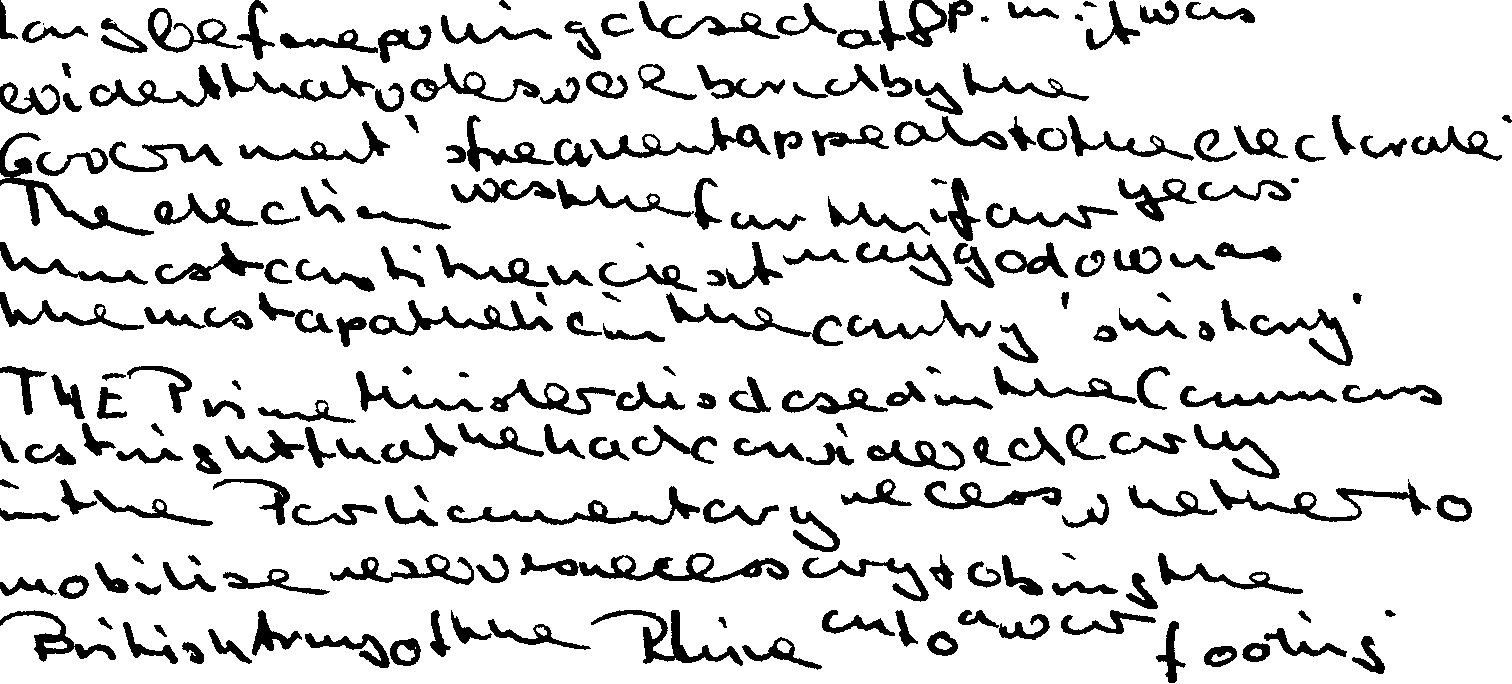 Long before polling closed at 8 p.m. it was
evident that votes were bored by the
Government's frequent appeals to the electorate.
The election was the fourth in four years.
In most constituencies it may go down as
the most apathetic in the country's history.
THE Prime Minister disclosed in the Commons
last night that he had considered early
in the Parliamentary recess, whether to
mobilise reserves necessary to bring the
British Army of the Rhine on to a war footing.